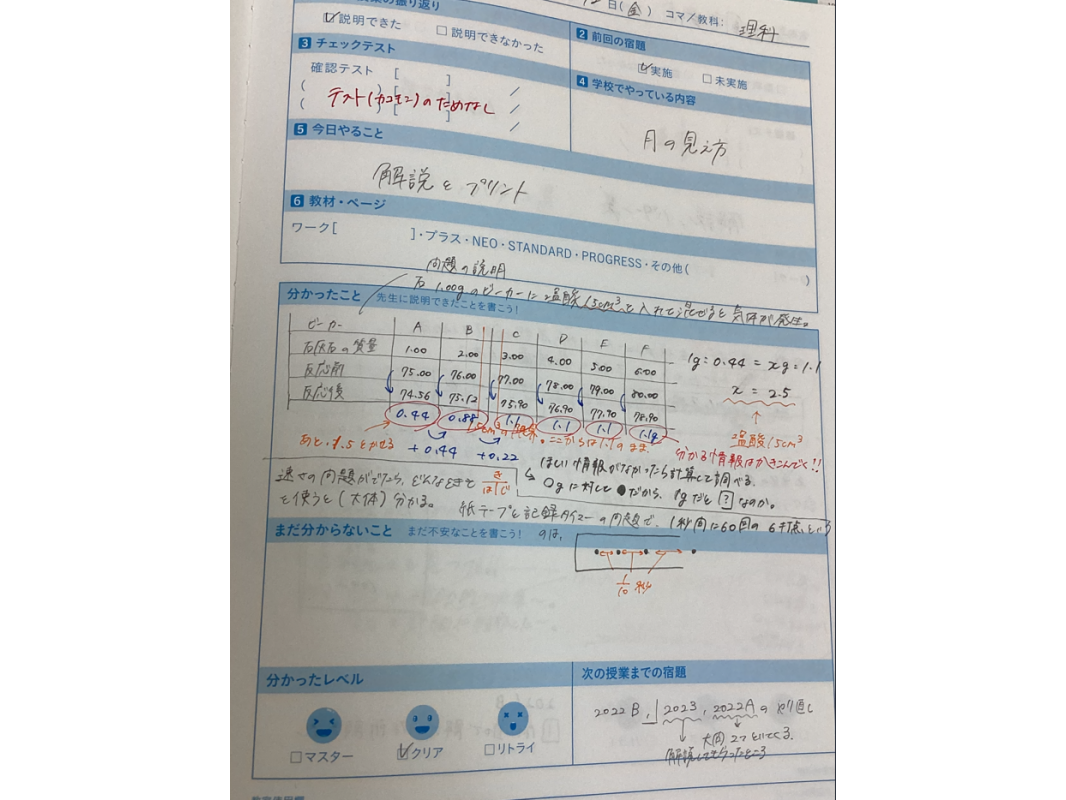 日(金) コマ/教科: 理科
の振り返り
☑説明できた □説明できなかった
2 前回の宿題
☑実施 □未実施
3 チェックテスト
確認テスト [ ]
テスト( )のためなし
4 学校でやっている内容
月の見え方
5 今日やること
解説とプリント
6 教材・ページ
ワーク[ ]・プラス・NEO・STANDARD・PROGRESS・その他( )
問題の説明
分かったこと 先生に説明できたことを書こう!
石1.00gのビーカーに塩酸15cm³を入れて混ぜると気体が発生。
ビーカー A B C D E F
石灰石の質量 1.00 2.00 3.00 4.00 5.00 6.00
反応前 75.00 76.00 77.00 78.00 79.00 80.00
反応後 74.56 75.12 75.90 76.90 77.90 78.90
0.44 0.88 1.1 1.1 1.1 1.1
1g:0.44=xg:1.1
x=2.5
塩酸15cm³
ここからは1.1のまま
分かる情報はかきこんでく!!
+0.44 +0.22
ほしい情報がなかったら計算して調べる。
○gに対して●だから、1gだと?なのか。
速さの問題がでたら、どんなときで き はじ
を使うと(大体)分かる。
紙テープと記録タイマーの問題で、1秒間に60回の6打点という
まだ分からないこと まだ不安なことを書こう! のは、
1/10 秒
分かったレベル
□マスター ☑クリア □リトライ
次の授業までの宿題
2022B, 2023, 2022Aのやり直し
大問2つといてくる。
解説してもらったところ